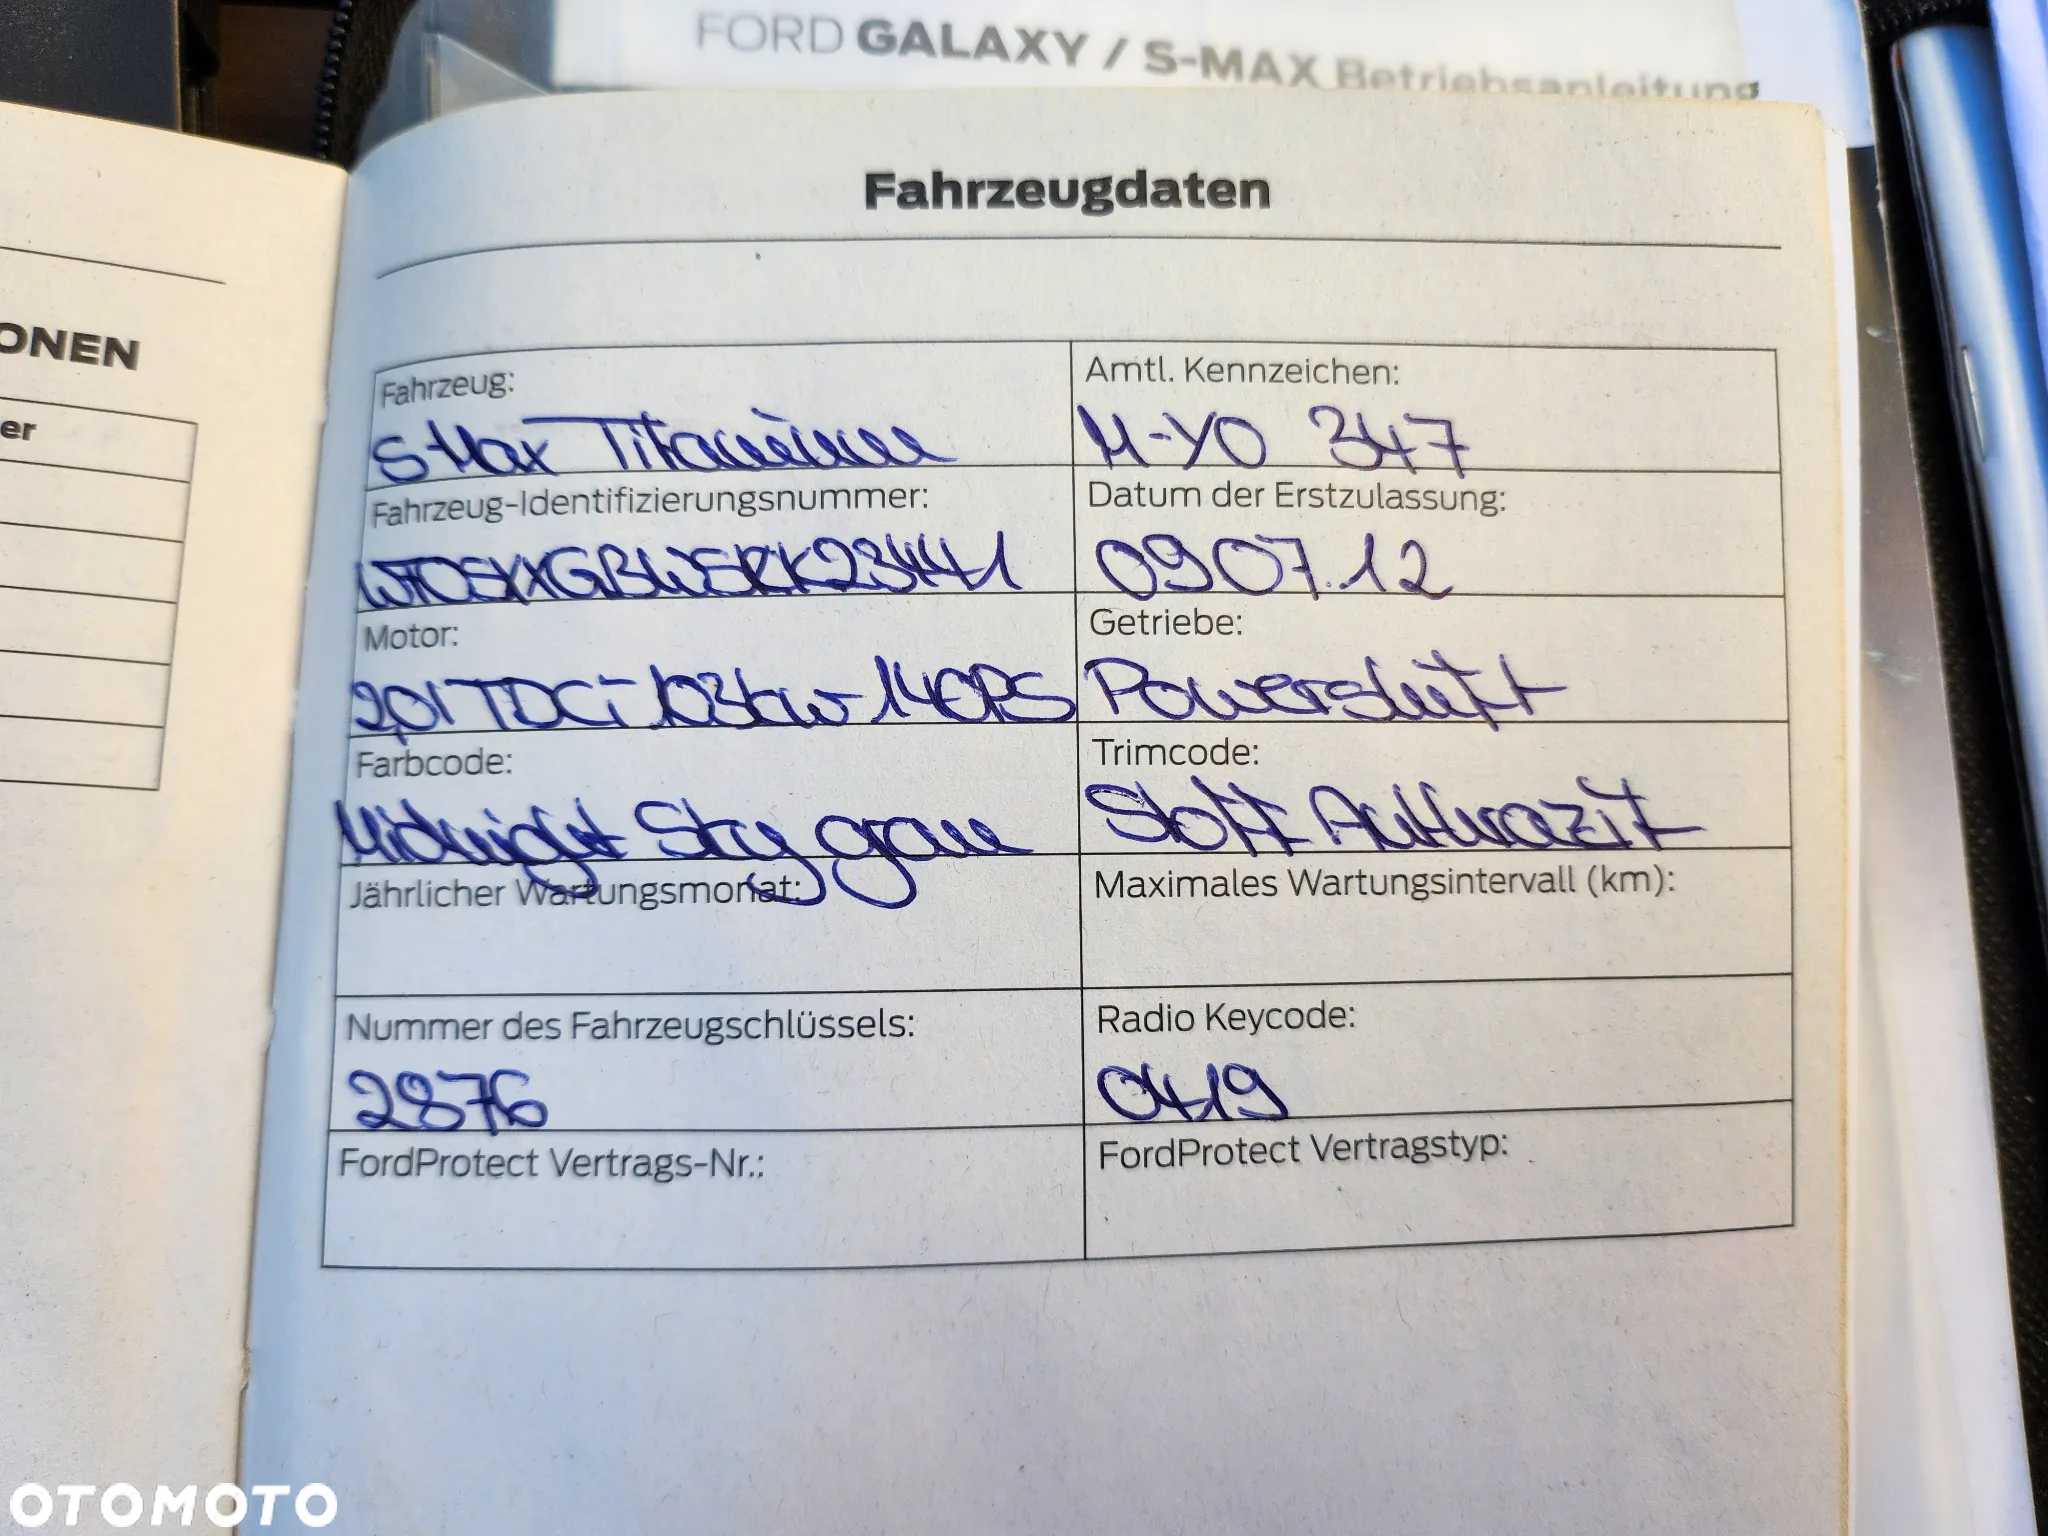 FORD GALAXY / S-MAX Betriebsanleitung
ONEN
er
Fahrzeugdaten
Fahrzeug:
S-Max Titanium
Amtl. Kennzeichen:
M-YO 347
Fahrzeug-Identifizierungsnummer:
WF0SXXGBWSCK23441
Datum der Erstzulassung:
09.07.12
Motor:
2,0l TDCi 103kw-140PS
Getriebe:
Powershift
Farbcode:
Midnight Sky grau
Trimcode:
Stoff Anthrazit
Jährlicher Wartungsmonat:
Maximales Wartungsintervall (km):
Nummer des Fahrzeugschlüssels:
2876
Radio Keycode:
0419
FordProtect Vertrags-Nr.:
FordProtect Vertragstyp:
OTOMOTO